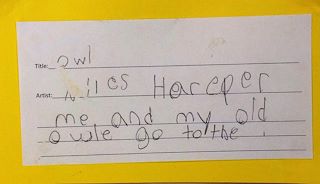 Title: owl
Artist: Niles Hareper
me and my old
owle go to the